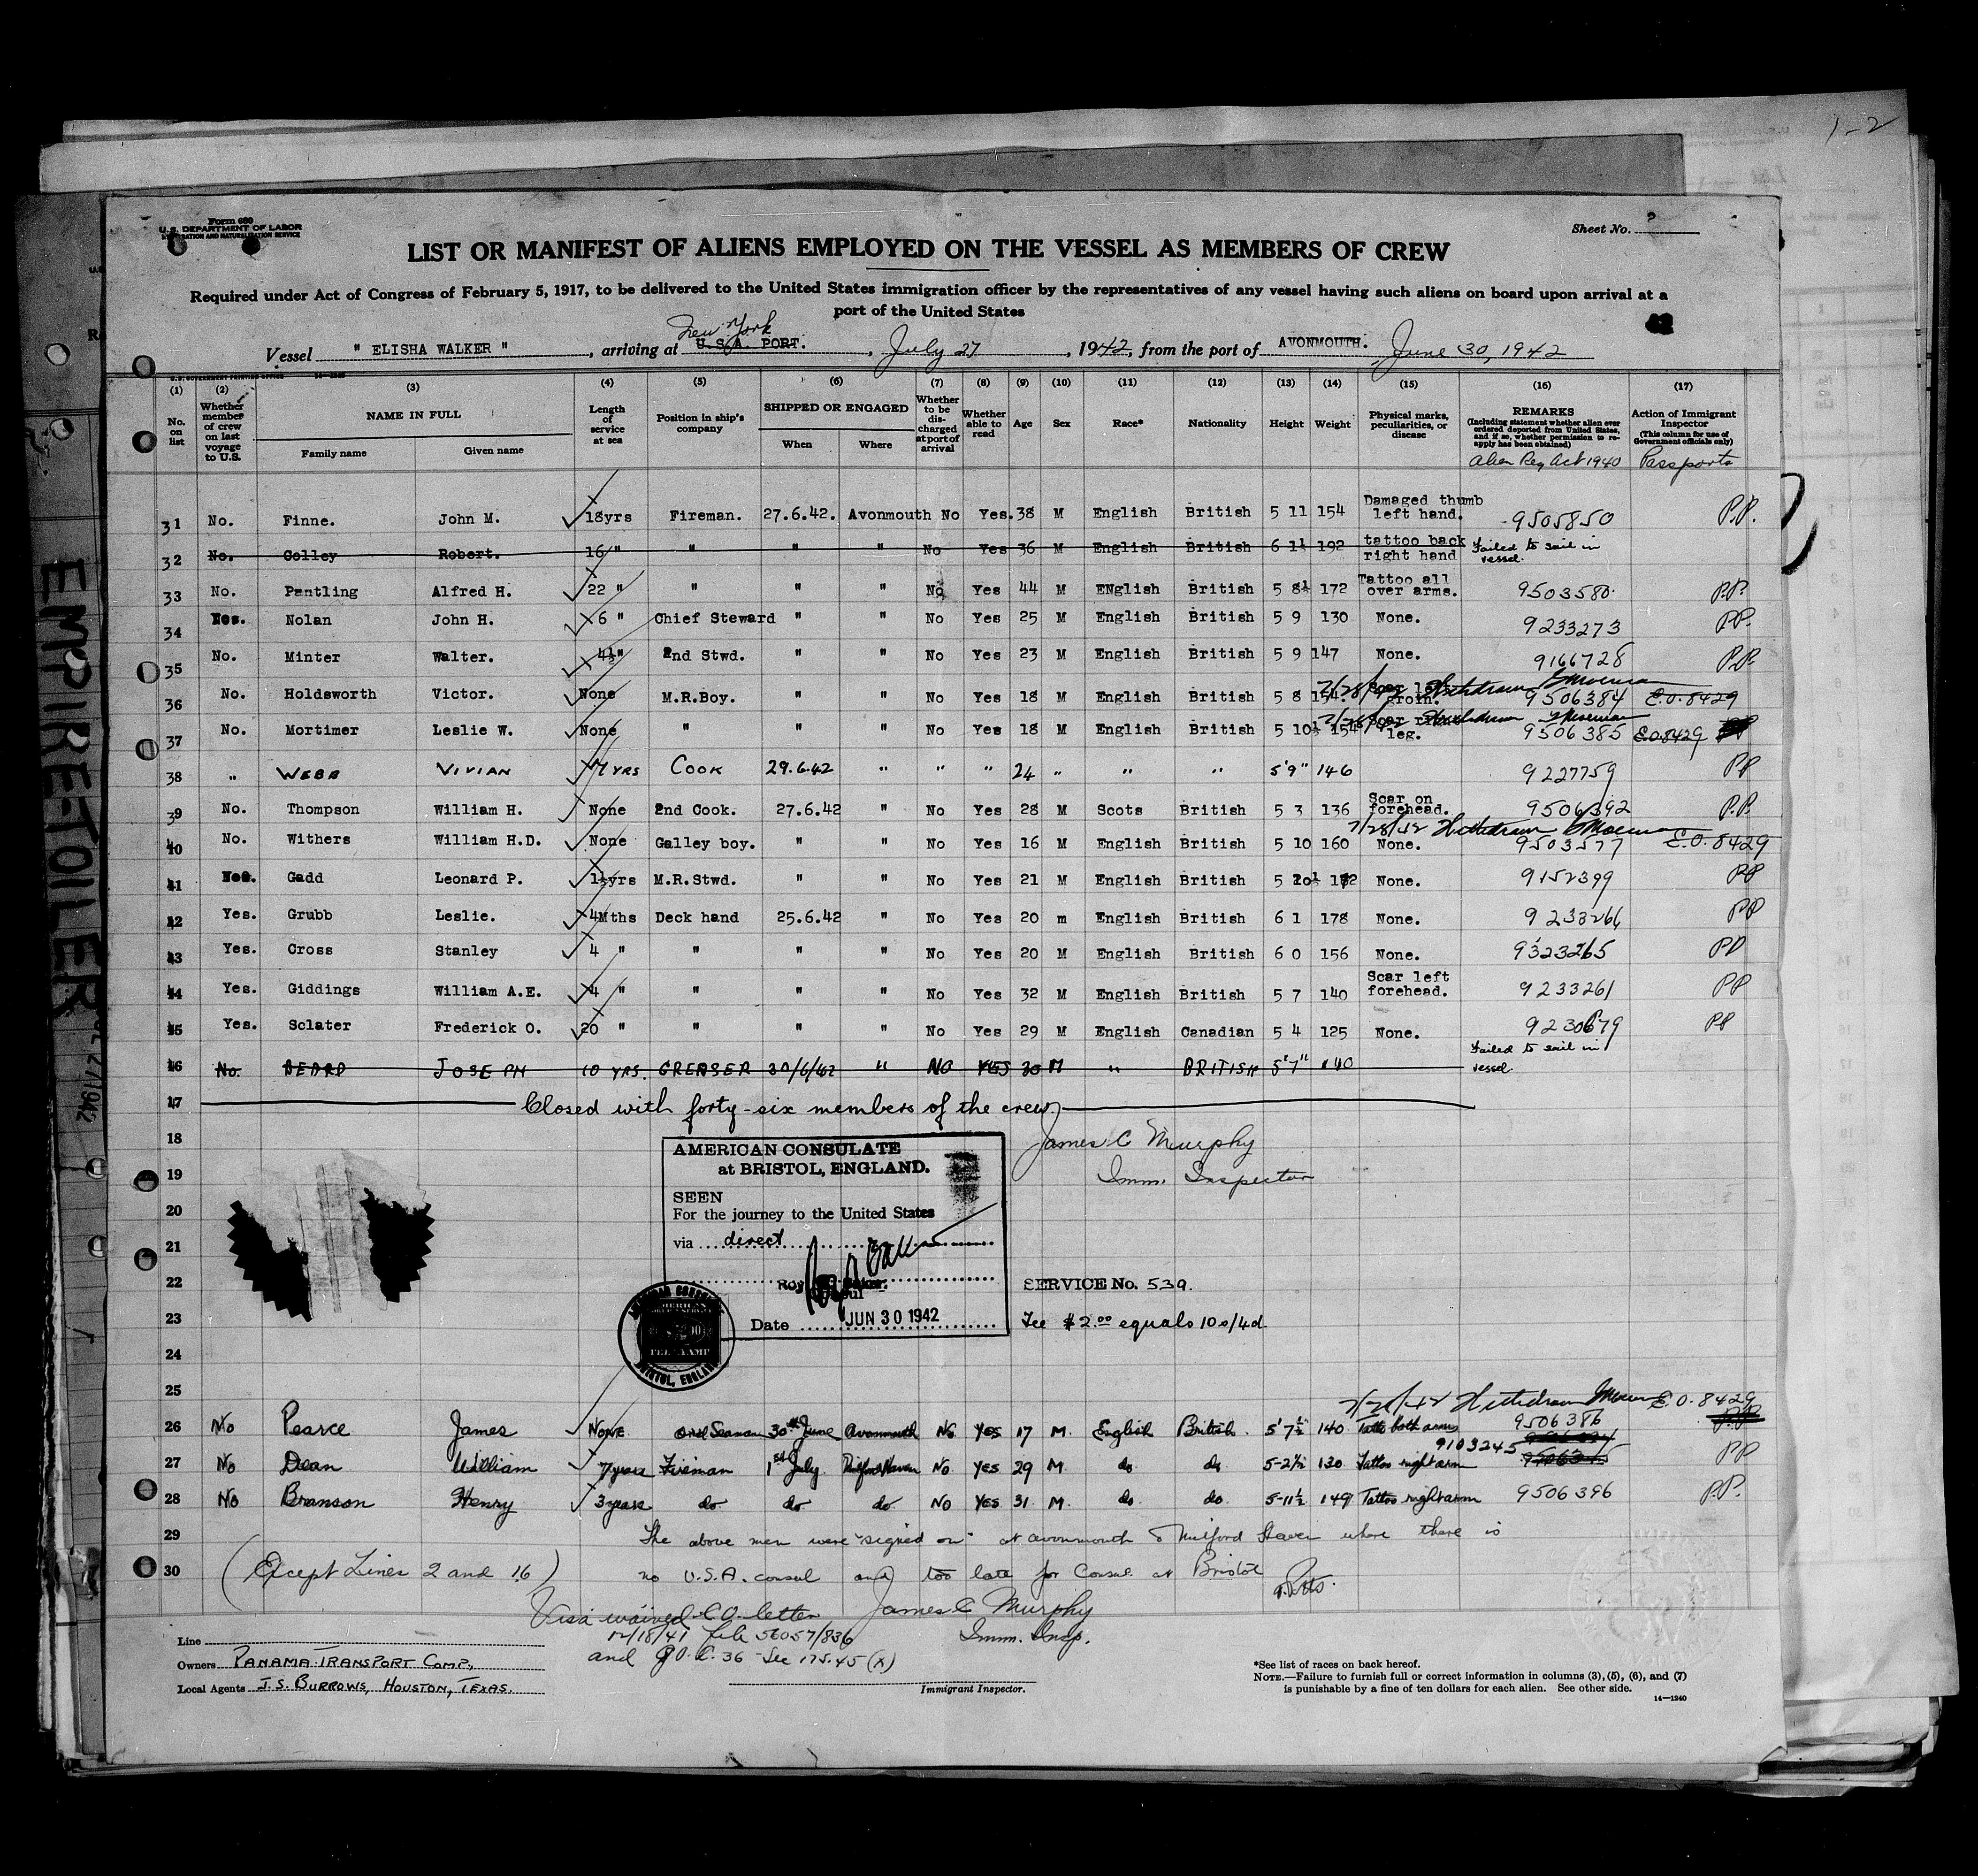 1-2
Form 680
U.S. DEPARTMENT OF LABOR
IMMIGRATION AND NATURALIZATION SERVICE
Sheet No. 2
LIST OR MANIFEST OF ALIENS EMPLOYED ON THE VESSEL AS MEMBERS OF CREW
Required under Act of Congress of February 5, 1917, to be delivered to the United States immigration officer by the representatives of any vessel having such aliens on board upon arrival at a
port of the United States
New York
Vessel " ELISHA WALKER " , arriving at U.S.A. PORT. , July 27 , 1942, from the port of AVONMOUTH. June 30, 1942
U.S. GOVERNMENT PRINTING OFFICE
(1) (2) (3) (4) (5) (6) (7) (8) (9) (10) (11) (12) (13) (14) (15) (16) (17)
No. on list
Whether member of crew on last voyage to U.S.
NAME IN FULL
Family name Given name
Length of service at sea
Position in ship's company
SHIPPED OR ENGAGED
When Where
Whether to be discharged at port of arrival
Whether able to read
Age Sex Race* Nationality Height Weight
Physical marks, peculiarities, or disease
REMARKS
(Including statement whether alien ever ordered deported from United States, and if so, whether permission to reapply has been obtained)
Alien Reg Act 1940
Action of Immigrant Inspector
(This column for use of Government officials only)
Passports
31 No. Finne. John M. 18yrs Fireman. 27.6.42. Avonmouth No Yes. 38 M English British 5 11 154 Damaged thumb left hand. 9505850 P.P.
32 No. Colley Robert. 16 " " " " No Yes 36 M English British 6 1½ 192 tattoo back right hand Failed to sail in vessel.
33 No. Pantling Alfred H. 22 " " " " No Yes 44 M ENglish British 5 8½ 172 Tattoo all over arms. 9503580. P.P.
34 Yes. Nolan John H. 6 " Chief Steward " " No Yes 25 M English British 5 9 130 None. 9233273 P.P.
35 No. Minter Walter. 4½" 2nd Stwd. " " No Yes 23 M English British 5 9 147 None. 9166728 P.P.
7/28/42 Withdrawn
36 No. Holdsworth Victor. None M.R.Boy. " " No Yes 18 M English British 5 8 154 Scar left groin. 9506384 E.O.8429
7/28/42 Withdrawn
37 No. Mortimer Leslie W. None " " " No Yes 18 M English British 5 10½ 154 Scar leg. 9506385 E.O.8429
38 " WEBB VIVIAN 7 YRS COOK 29.6.42 " " " 24 " " " 5'9" 146 9227759 PP
39 No. Thompson William H. None 2nd Cook. 27.6.42 " No Yes 28 M Scots British 5 3 136 Scar on forehead. 9506392 P.P.
7/28/42 Withdrawn
40 No. Withers William H.D. None Galley boy. " " No Yes 16 M English British 5 10 160 None. 9503577 E.O.8429
41 Gadd Leonard P. 1½yrs M.R.Stwd. " " No Yes 21 M English British 5 10½ None. 9152399 PP
42 Yes. Grubb Leslie. 4Mths Deck hand 25.6.42 " No Yes 20 m English British 6 1 178 None. 9233266 PP
43 Yes. Cross Stanley 4 " " " " No Yes 20 M English British 6 0 156 None. 9323265 PP
44 Yes. Giddings William A.E. 4 " " " " No Yes 32 M English British 5 7 140 Scar left forehead. 9233261 PP
45 Yes. Sclater Frederick O. 20 " " " " No Yes 29 M English Canadian 5 4 125 None. 9230679 PP
46 No. BEARD JOSEPH 10 YRS. GREASER 30/6/42 " NO YES 30 M " BRITISH 5'7" 140 Failed to sail in vessel
17 Closed with forty-six members of the crew.
18 James C Murphy
19 Imm. Inspector
20
21
22
23
24
25
AMERICAN CONSULATE
at BRISTOL, ENGLAND.
SEEN
For the journey to the United States
via direct
Roy
Date JUN 30 1942
SERVICE No. 539.
Fee $2.00 equals 10s/4d.
AMERICAN CONSULATE
BRISTOL, ENGLAND
Withdrawn E.O.8429
26 No Pearce James NONE Seaman 30th June Avonmouth No YES 17 M. English British. 5'7½ 140 Tatto both arms 9506386
27 No Dean William 7 years Fireman 1st July. Milford Haven NO YES 29 M do do 5-2½ 130 Tattoo right arm 9103245 PP
28 No Branson Henry 3 years do do do NO YES 31 M. do do 5-11½ 149 Tattoo right arm 9506396 P.P.
29 The above men were "signed on" at avonmouth & Milford Haven where there is
30 (Except Lines 2 and 16) no U.S.A. consul and too late for Consul at Bristol
Visa waived C.O. letter James C Murphy
12/18/41 file 56057/836 Imm. Insp.
and 36 Sec 175.45 (x)
Line
Owners PANAMA TRANSPORT COMP,
Local Agents J.S. BURROWS, HOUSTON, TEXAS.
Immigrant Inspector.
*See list of races on back hereof.
NOTE.—Failure to furnish full or correct information in columns (3), (5), (6), and (7)
is punishable by a fine of ten dollars for each alien. See other side.
14—1240
EMPIRE-TOILER